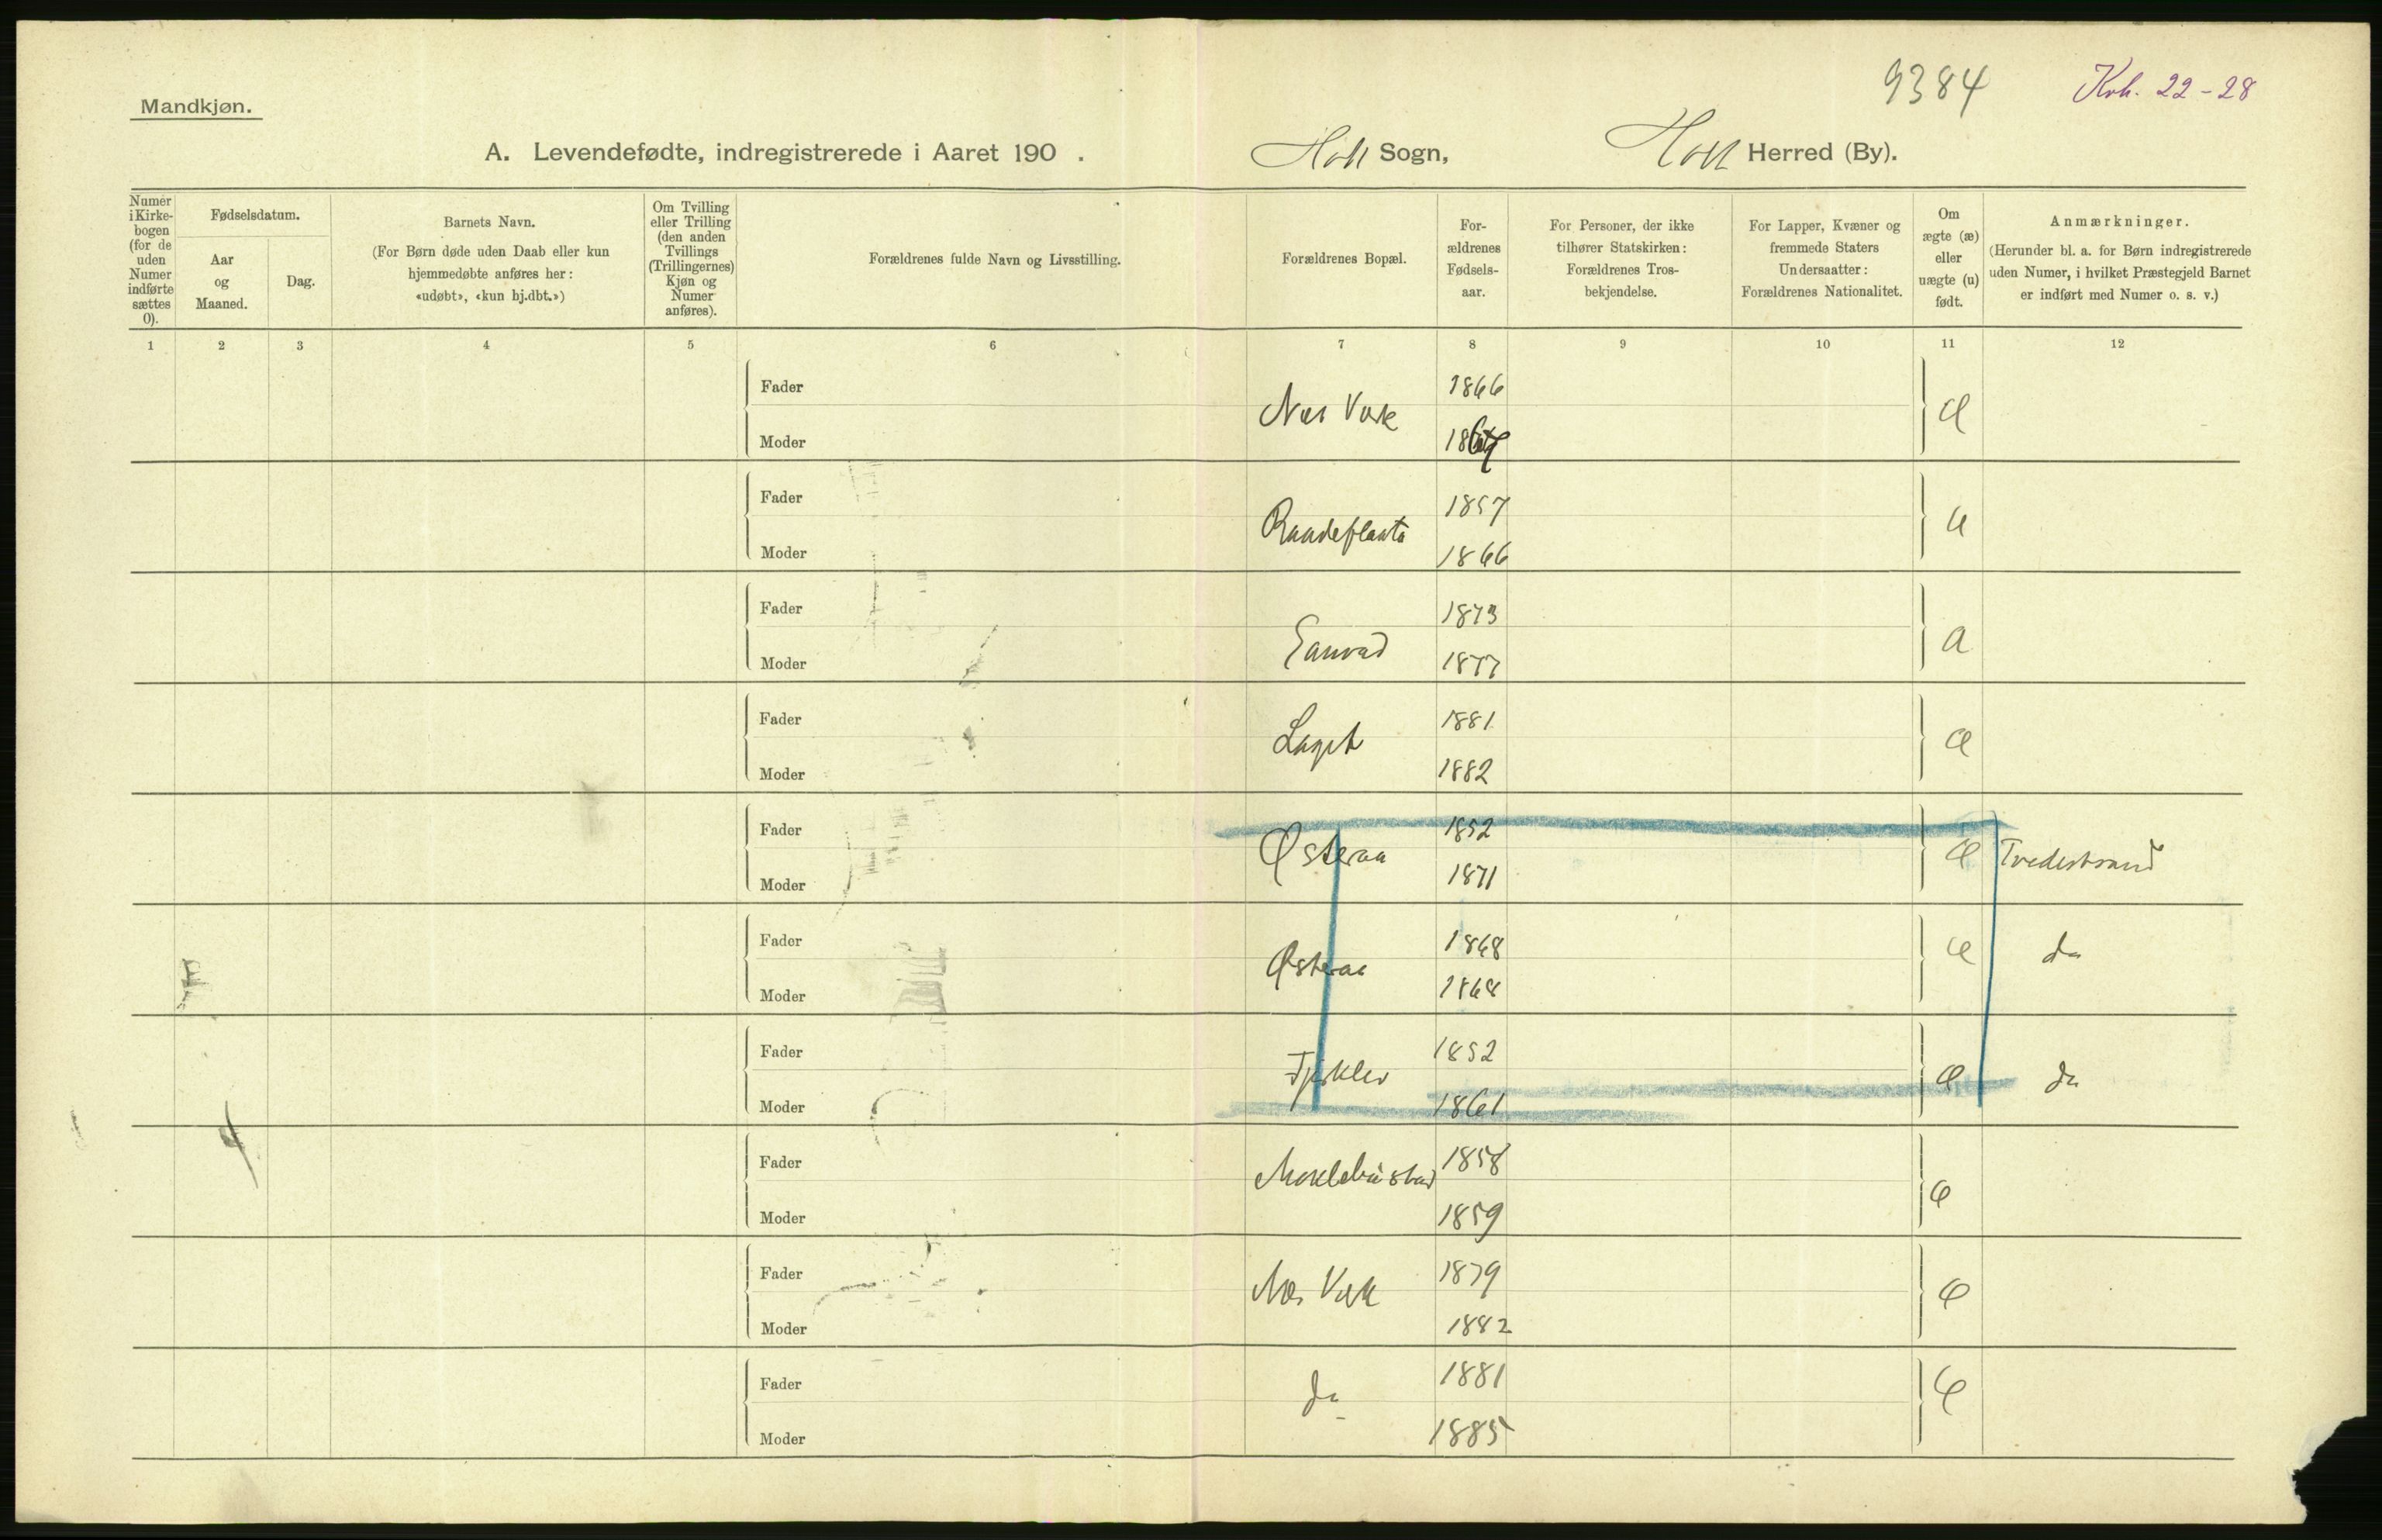 9384
Krh. 22-28
Mandkjøn.
A. Levendefødte, indregistrerede i Aaret 190 . Holt Sogn, Holt Herred (By).
Numer i Kirke-bogen (for de uden Numer indførte sættes 0).
Fødselsdatum.
Aar og Maaned.
Dag.
Barnets Navn.
(For Børn døde uden Daab eller kun
hjemmedøbte anføres her:
«udøbt», «kun hj.dbt.»)
Om Tvilling
eller Trilling
(den anden
Tvillings
(Trillingernes)
Kjøn og
Numer
anføres).
Forældrenes fulde Navn og Livsstilling.
Forældrenes Bopæl.
For-
ældrenes
Fødsels-
aar.
For Personer, der ikke
tilhører Statskirken:
Forældrenes Tros-
bekjendelse.
For Lapper, Kvæner og
fremmede Staters
Undersaatter:
Forældrenes Nationalitet.
Om
ægte (æ)
eller
uægte (u)
født.
Anmærkninger.
(Herunder bl. a. for Børn indregistrerede
uden Numer, i hvilket Præstegjeld Barnet
er indført med Numer o. s. v.)
1 2 3 4 5 6 7 8 9 10 11 12
Fader 1866
Næs Værk æ
Moder
Fader 1857
Moder 1866
Fader 1873
Moder 1877
Fader 1881
Laget æ
Moder 1882
Fader 1852
Østeraa æ Tvedestrand
Moder 1871
Fader 1868
Østeraa æ do
Moder 1868
Fader 1852
æ do
Moder 1861
Fader 1858
æ
Moder 1859
Fader 1879
Næs Værk æ
Moder 1882
Fader 1881
do æ
Moder 1885